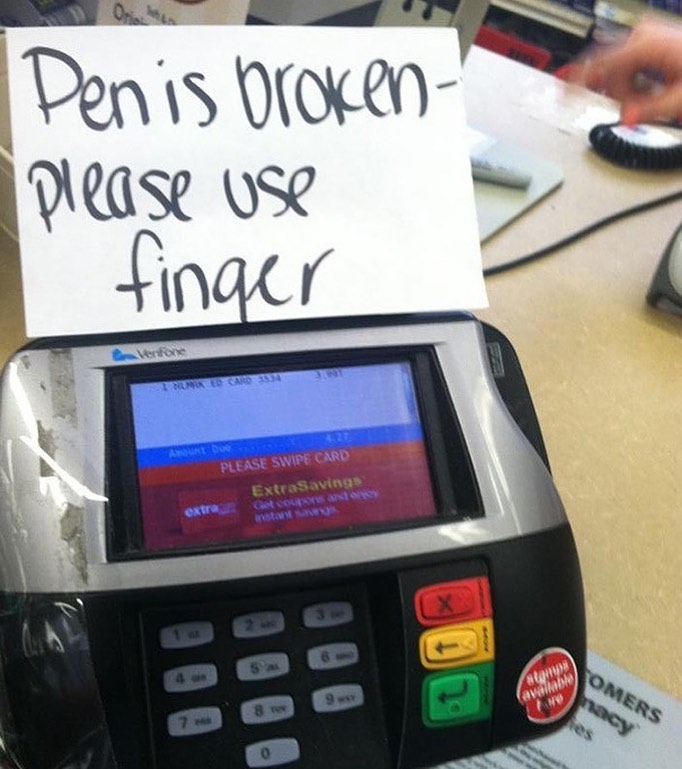 Pen is broken-
please use
finger
VeriFone
1 HLMRK ED CARD 3534 3.99T
Amount Due 4.27
PLEASE SWIPE CARD
ExtraSavings
Get coupons and enjoy
instant savings.
extra
1
2 ABC
3
4
5
6
7
8
9
0
stamps
available
here
TOMERS
macy